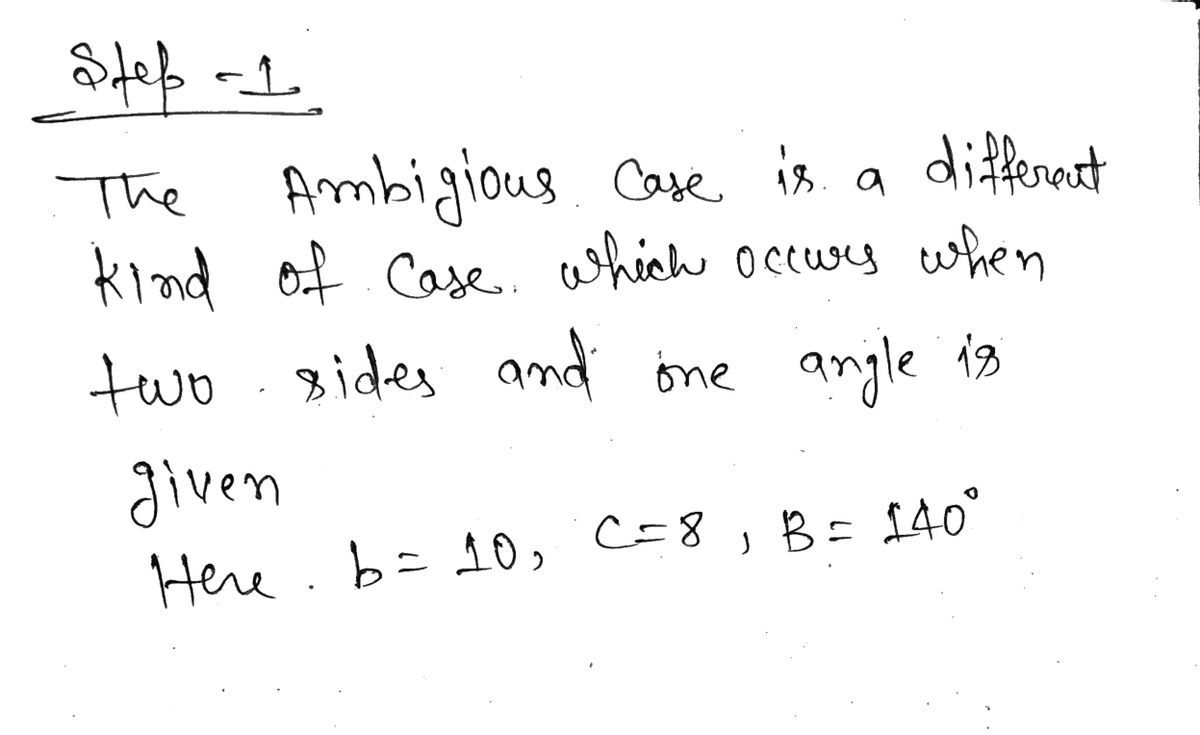 Step -1
The Ambigious Case is a different
kind of Case. which occurs when
two sides and one angle is
given
Here. b = 10, C=8, B = 140°